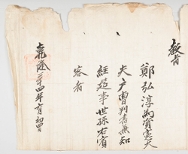 敎旨
鄭弘淳爲資憲大
夫戶曹判書兼知
經筵事世孫右賓
客者
乾隆 十四年 月初